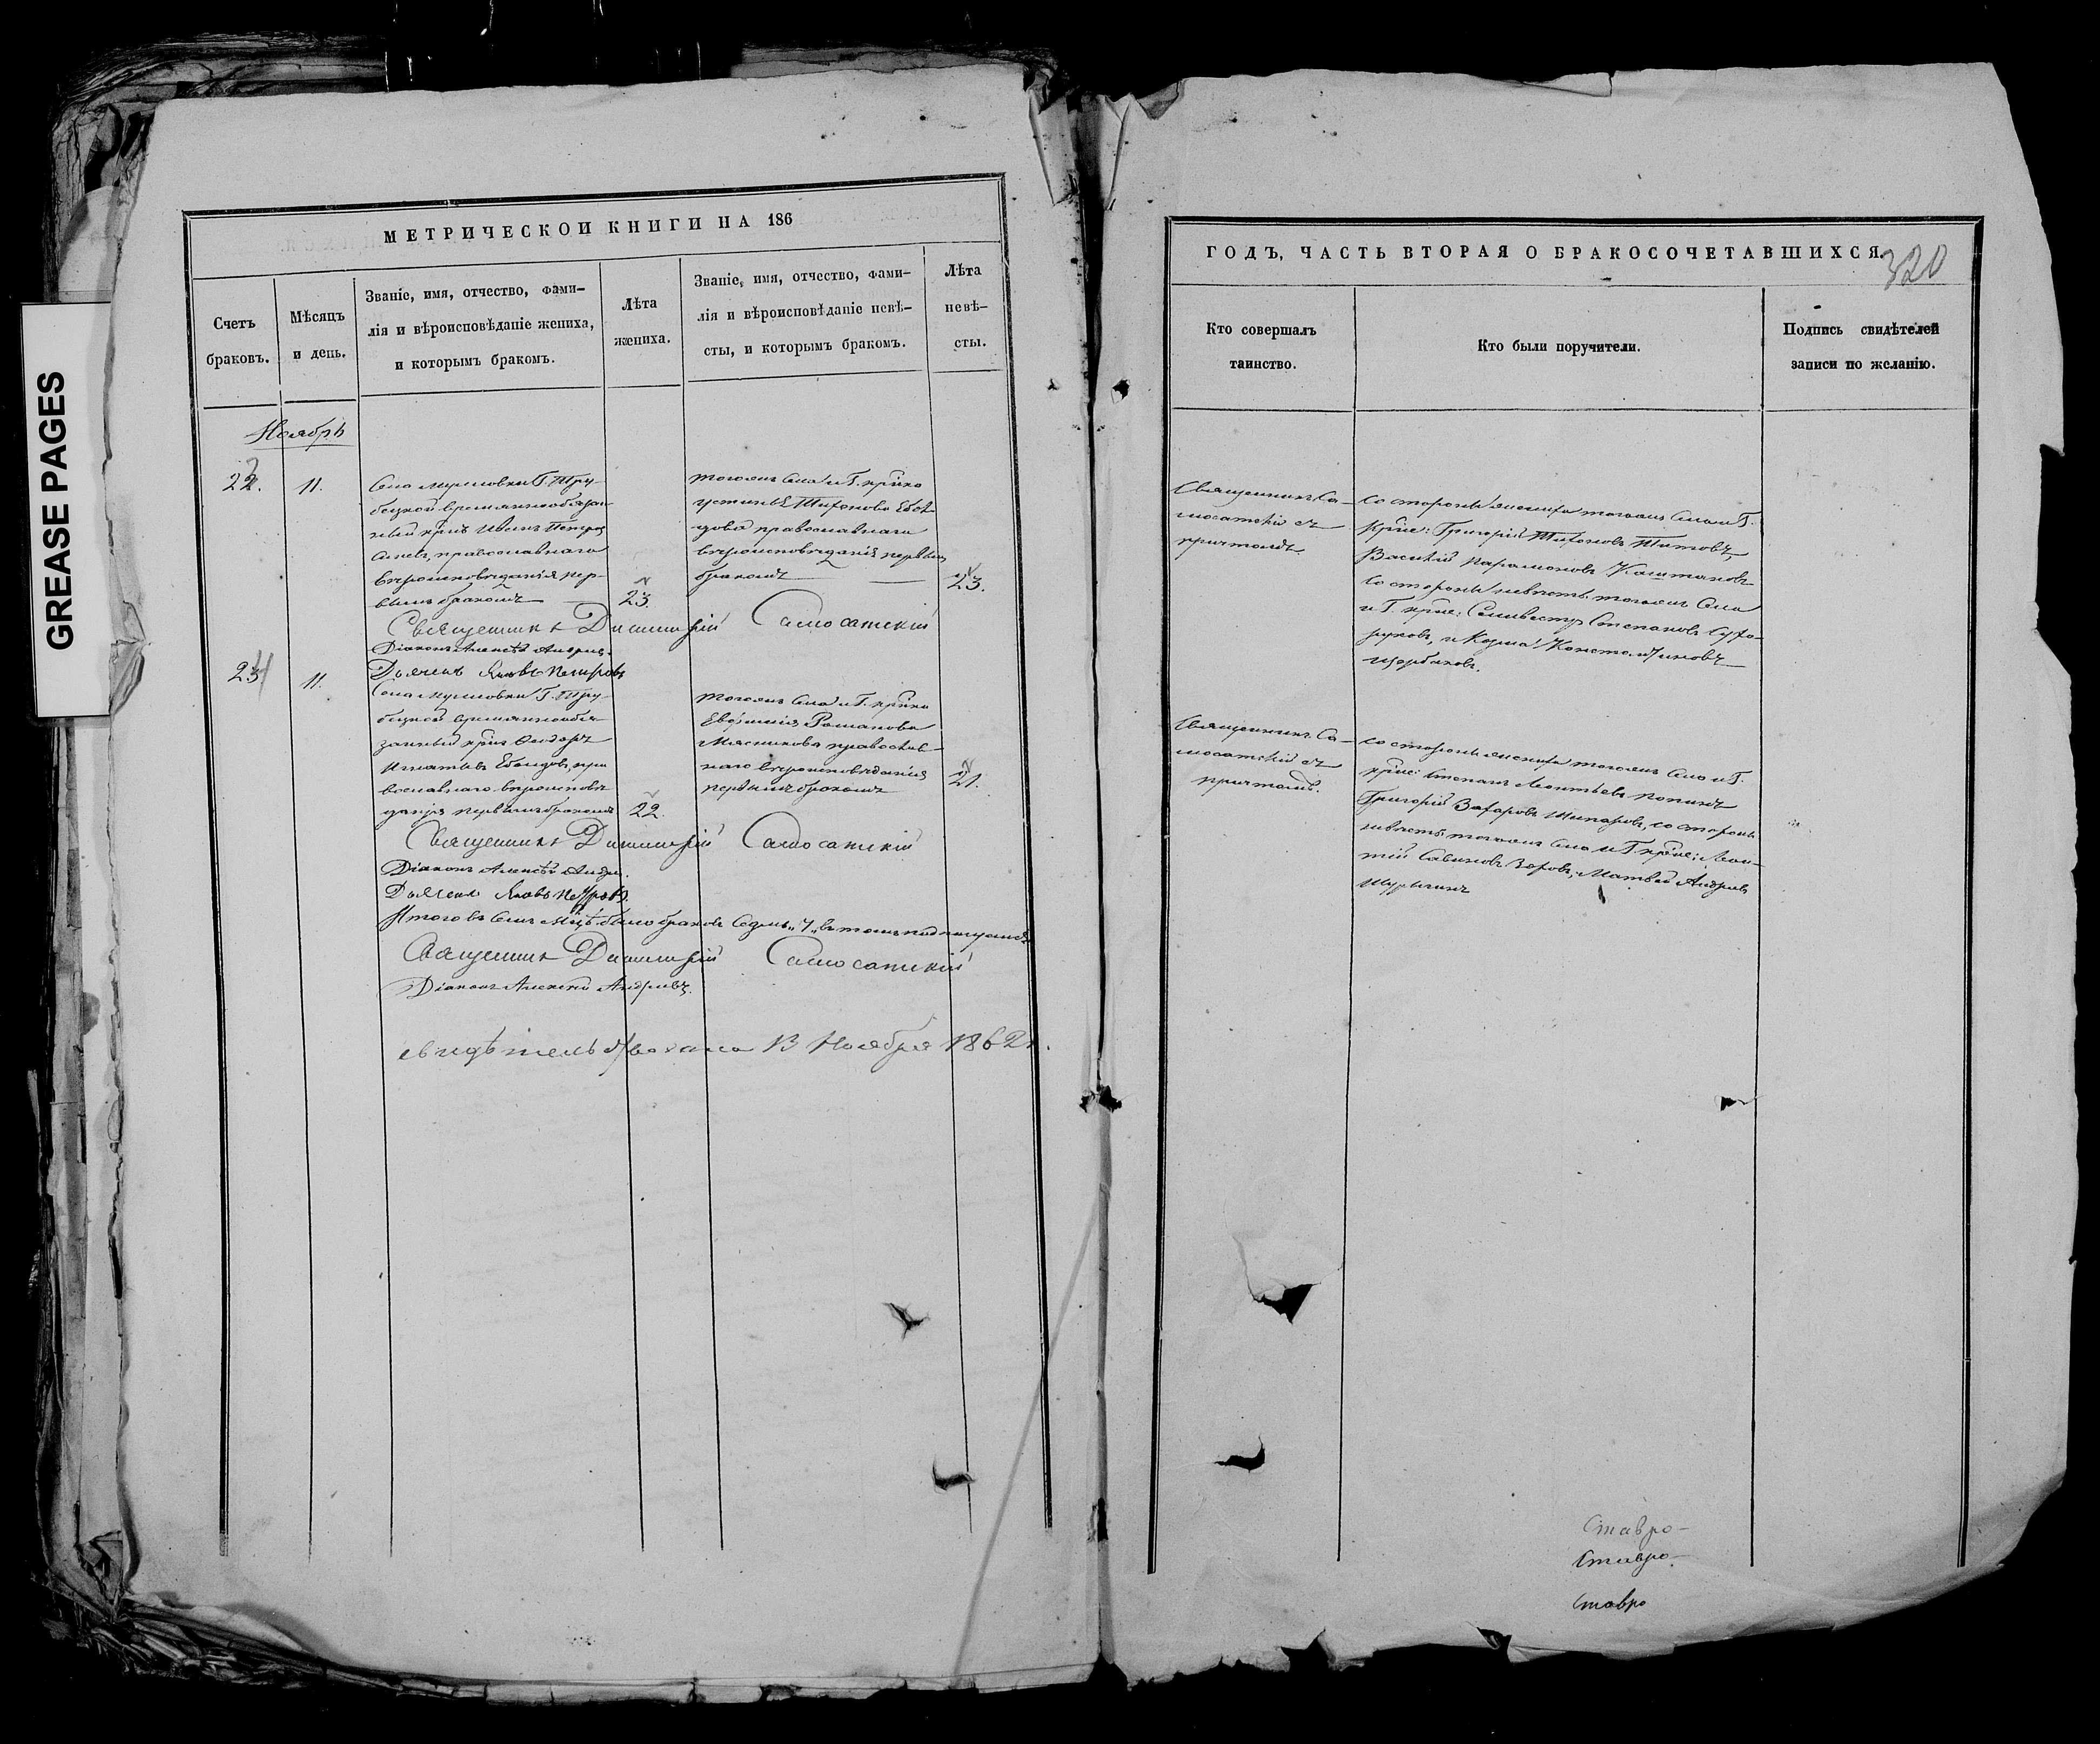 GREASE PAGES
МЕТРИЧЕСКОЙ КНИГИ НА 186
Счетъ браковъ.
Мѣсяцъ и день.
Званіе, имя, отчество, фами-
лія и вѣроисповѣданіе жениха,
и которымъ бракомъ.
Лѣта
жениха.
Званіе, имя, отчество, фами-
лія и вѣроисповѣданіе невѣ-
сты, и которымъ бракомъ.
Лѣта
невѣ-
сты.
Ноябрь
22.
11.
Села Муриловки Г. Тру-
бецкой временнообязан
ный крнъ Иванъ Петров
православнаго
вѣроисповѣданія пер-
вымъ бракомъ
23.
тогожъ Села и Г. крѣпо
Устинья Тихонова
православнаго
вѣроисповѣданія первымъ
бракомъ
23.
Священникъ Димитрій Самосатскій
Діаконъ Алексѣй Андрее.
Дьячекъ Яковъ Петровъ
23
11.
Села Муриловки Г. Тру-
бецкой временнообя-
занный крнъ Ѳеодоръ
Игнатьевъ пра
вославнаго вѣроисповѣ
данія первымъ бракомъ
22.
тогожъ Села и Г. крѣпо
Евфимія Романова
Мясникова православ-
наго вѣроисповѣданія
первымъ бракомъ
21.
Священникъ Димитрій Самосатскій
Діаконъ Алексѣй Андре.
Дьячекъ Яковъ Петровъ.
Итого въ Семъ Мцѣ было браковъ Седмь „7„ въ томъ подпишемся
Священникъ Димитрій Самосатскій
Діаконъ Алексѣй Андреевъ.
свидѣтельствована 13 Ноября 1862 г.
ГОДЪ, ЧАСТЬ ВТОРАЯ О БРАКОСОЧЕТАВШИХСЯ.
320
Кто совершалъ
таинство.
Кто были поручители.
Подпись свидѣтелей
записи по желанію.
Священникъ Са-
мосатскій съ
причтомъ.
со стороны жениха тогожъ Села и Г.
крѣпс: Григорій Тихоновъ Титовъ,
Василій Парамоновъ Каштановъ
Со стороны невѣсты тогожъ Села
и Г. крѣпс: Селивестръ Степановъ Сухо-
руковъ, и Козма Константиновъ
Щербаковъ.
Священникъ Са-
мосатскій съ
причтомъ.
со стороны жениха тогожъ Села и Г.
крѣпс: Степанъ Леонтьевъ Попинъ
Григорій Захаровъ со стороны
невѣсты тогожъ Села и Г. крѣпс: Леон-
тій Савиновъ Зеровъ, Матвей Андреевъ
Шурыгинъ
Ставро-
Ставро-
Ставро